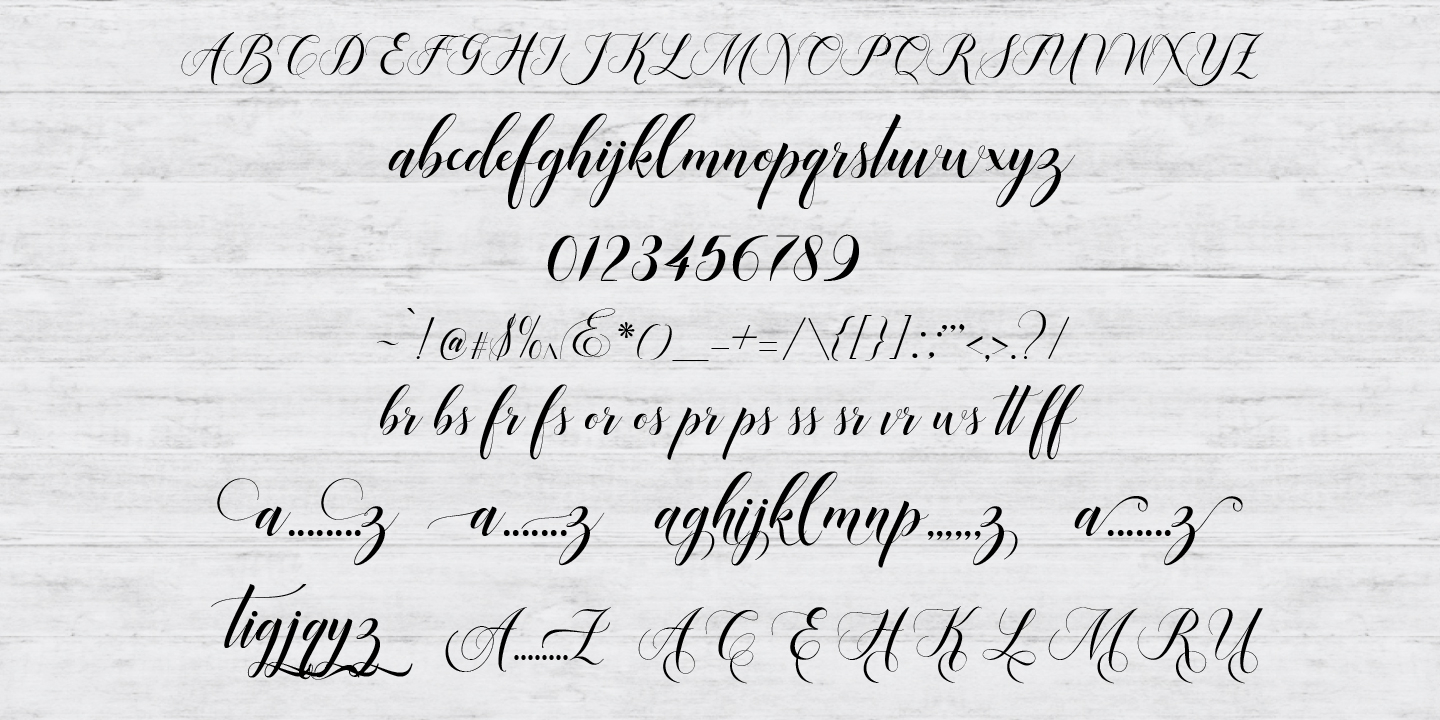 ABCDEFGHIJKLMNOPQRSTUVWXYZ
abcdefghijklmnopqrstuvwxyz
0123456789
~`!@#$%^&*()_-+=/\{[}]:;"'<,>.?/
br bs fr fs or os pr ps ss sr vr ws tt ff
a........z a.......z aghijklmnp,,,,,,z a.......z
tigjqyz A........Z A C E H K L M R U